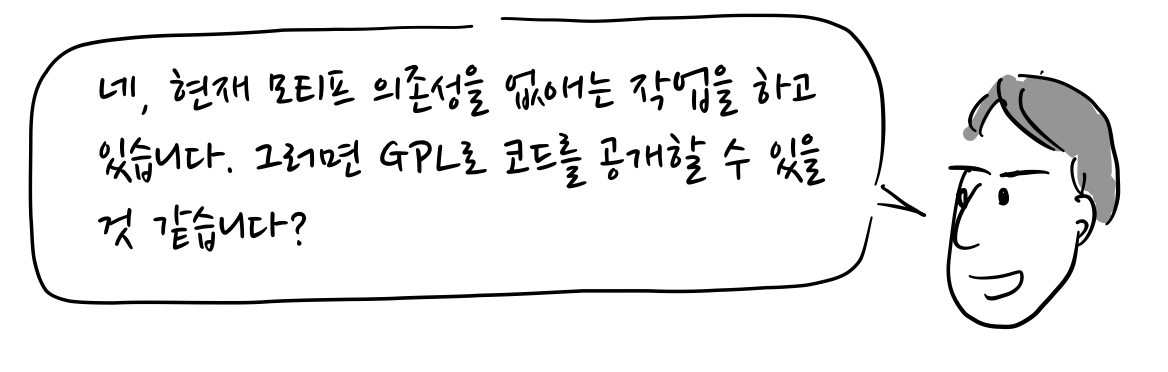 네, 현재 모티프 의존성을 없애는 작업을 하고
있습니다. 그러면 GPL로 코드를 공개할 수 있을
것 같습니다?